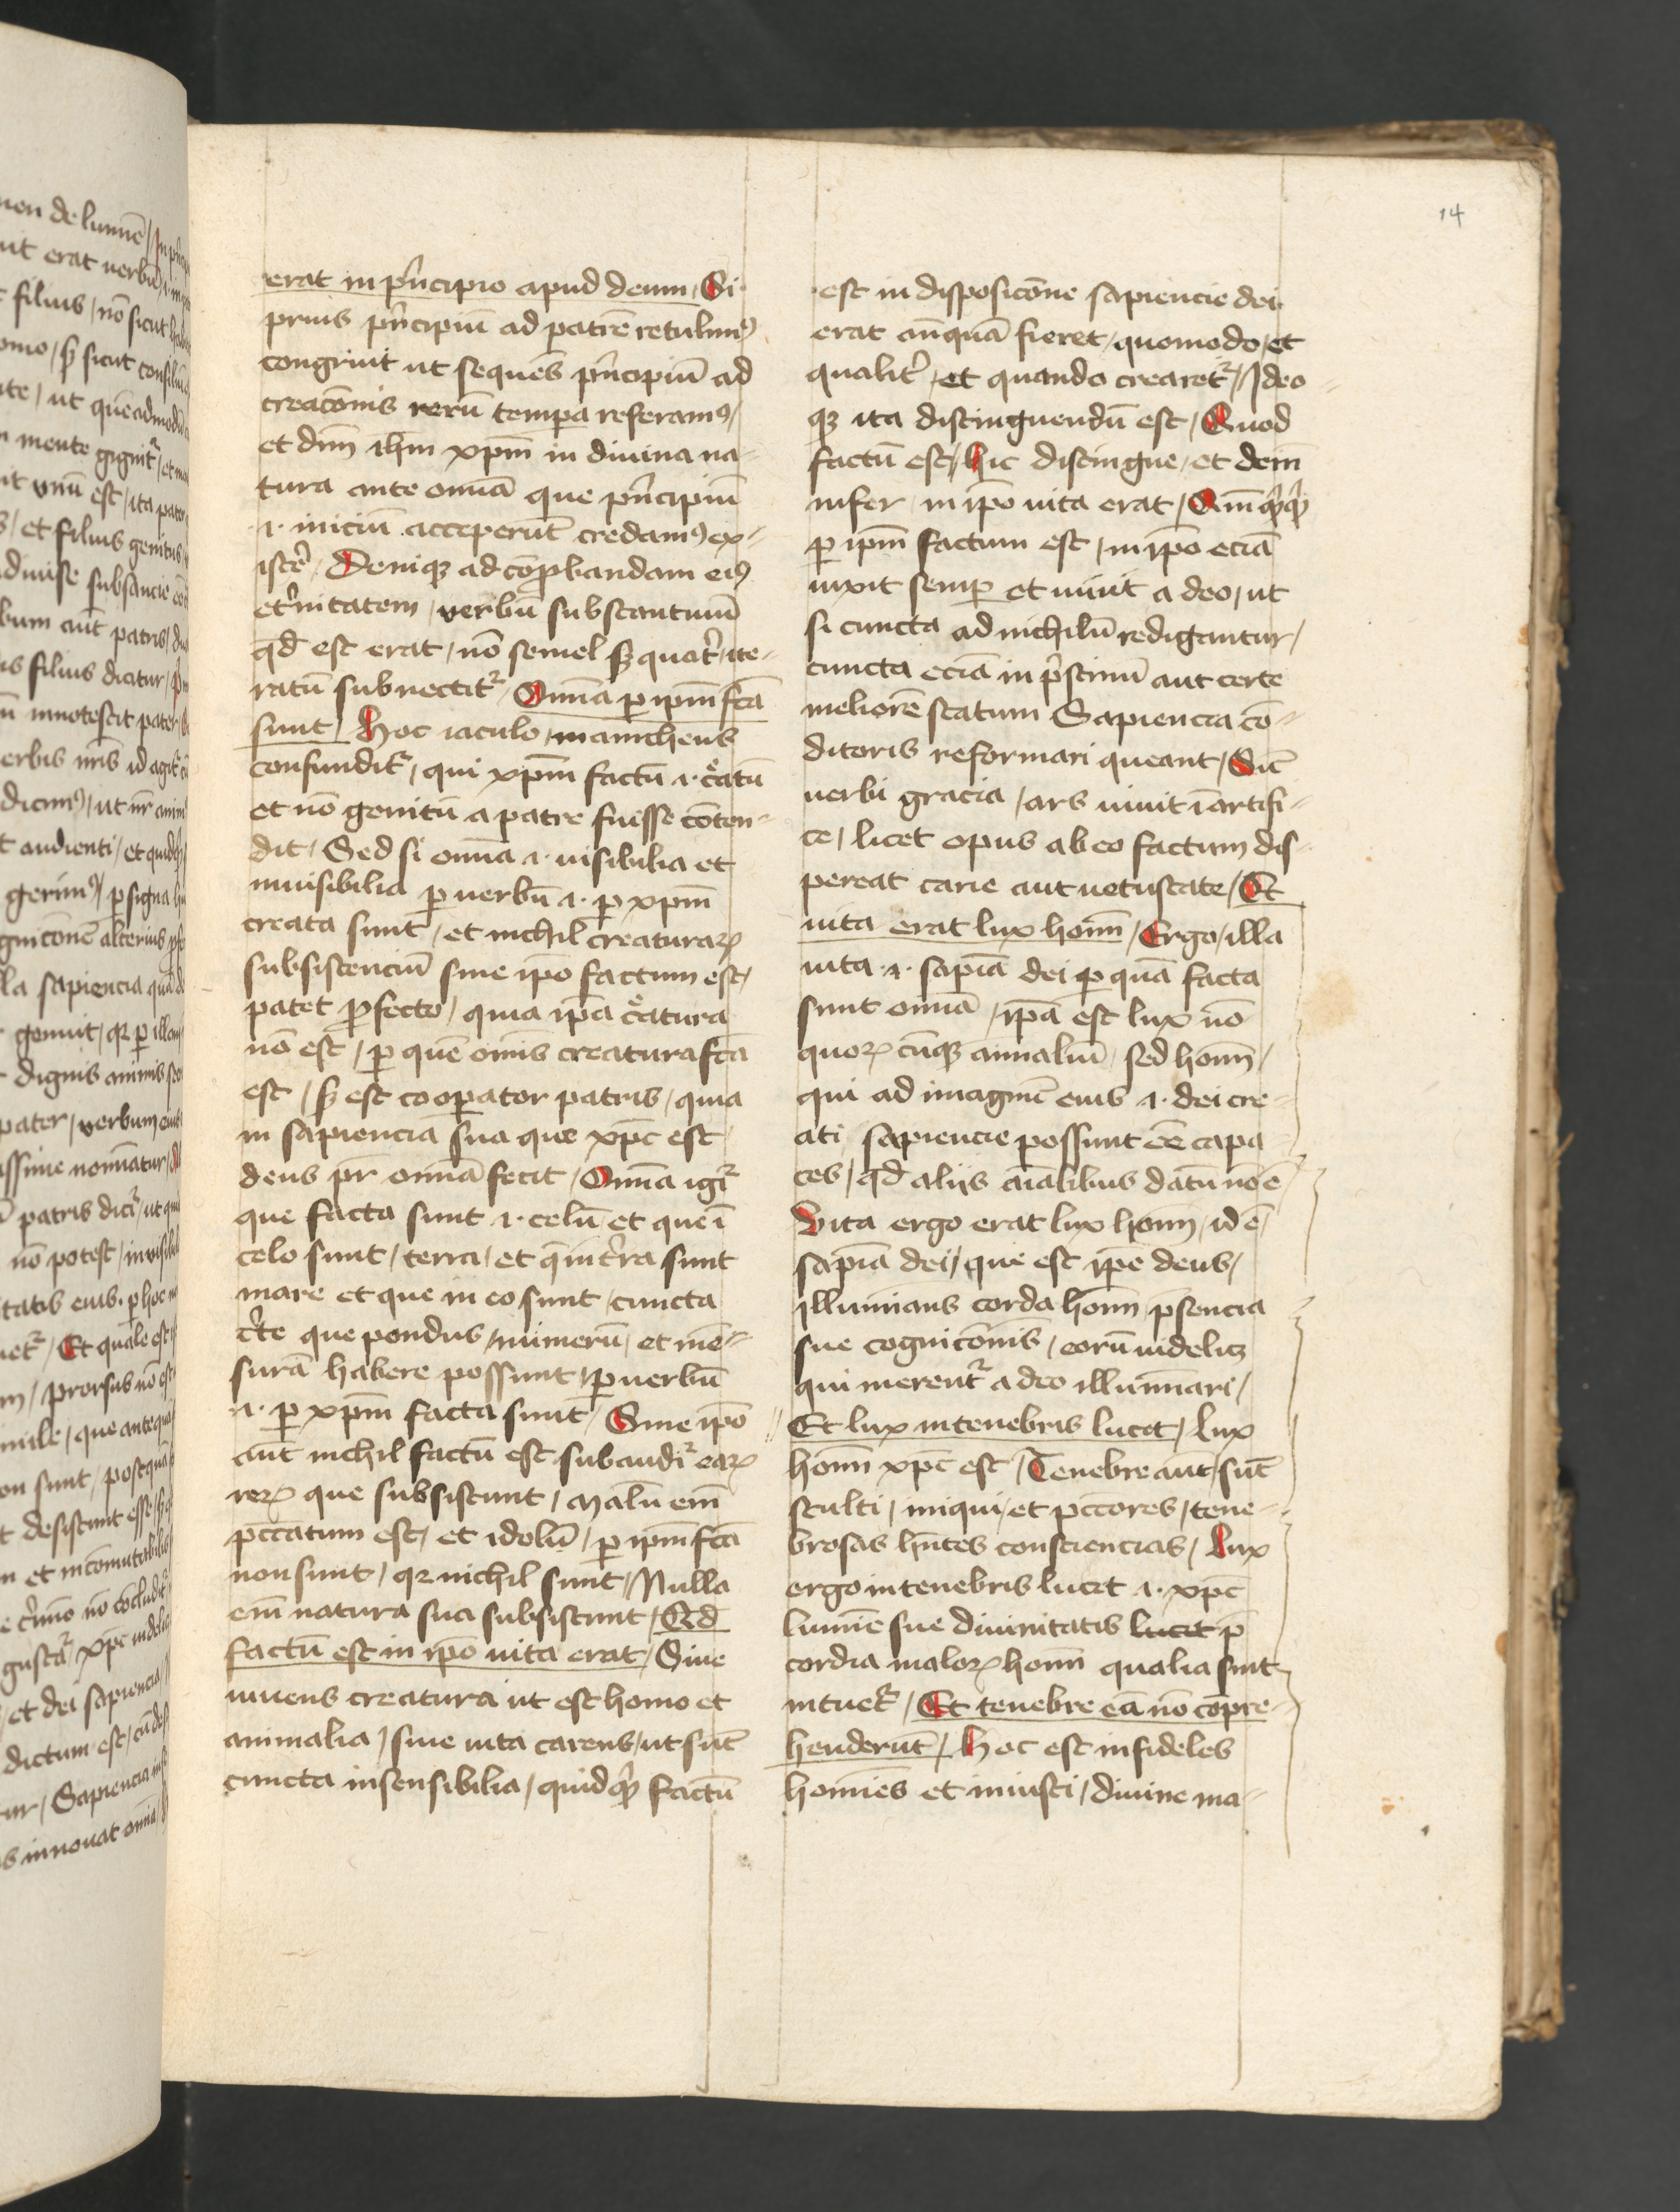 14
erat in pͥncipio apud deum / Si
prius pͥncipiū ad patrē retulimꝰ
congruit ut sequēs pͥncipiū ad
creac̄onis rerū tempa referamꝰ /
et dn̄m ih̄m xp̄m in diuina na-
tura ante om̄ia que pͥncipiū
.i. iniciū acceperūt credamꝰ ex-
iste᷑ / Deniqꝫ ad cōꝓbandam eiꝰ
et᷑nitatem / verbū substantiuū
qd̄ est erat / nō semel sꝫ quat᷑ / ite-
ratū subnectit᷑ / Om̄ia ꝑ ip̄m fc̄a
sunt / Hoc iaculo / manicheus
confundit᷑ / qui xp̄m factū .i. c͛atū
et nō genitū a patre fuisse cōten-
dit / Sed si om̄ia .i. uisibilia et
inuisibilia ꝑ uerbū .i. ꝑ xp̄m
creata sunt / et nichil creaturaꝝ
subsistenciū sine ip̄o factum est /
patet ꝓfecto / quia ip̄a c͛atura
nō est / ꝑ quē om̄is creatura fc̄a
est / sꝫ est cooꝑator patris / quia
in sapiencia sua que xp̄c est
deus pr̄ om̄ia fecit / Om̄ia igi᷑
que facta sunt .i. celū et que ī
celo sunt / terra / et q̄ in t᷑ra sunt
mare et que in eo sunt / cuncta
c᷑te que pondus / numerū / et mē-
surā habere possunt / ꝑ uerbū
.i. ꝑ xp̄m facta sunt / Sine ip̄o
aūt nichil factū est subaudi᷑ eaꝝ
reꝝ que subsistunt / Malū em̄
pccatum est / et idolū / ꝑ ip̄m fc̄a
non sunt / qꝛ nichil sunt / Nulla
em̄ natura sua subsistunt / Qd̄
factū est in ip̄o uita erat / Siue
uiuens creatura ut est homo et
animalia / siue uita carens / ut sūt
cuncta insensibilia / quidqͥd factū
est in disposicōne sapiencie dei
erat an̄quā fieret / quomodo / et
qualit᷑ / et quando crearet᷑ / Ideo-
qꝫ ita distinguendū est / Quod
factū est / hic distingue / et dein̄
infer / in ip̄o uita erat /
ꝑ ip̄m factum est / in ip̄o eciā
uixit semꝑ et uiuit a deo / ut
si cuncta ad nichilū redigantur /
cuncta eciā in pͥstinū aut certe
meliorē statum Sapiencia cō-
ditoris reformari queant / Sic̄
uerbi gracia / ars uiuit ī artifi-
ce / licet opus ab eo factum dis-
pereat carie aut uetustate / Et
uita erat lux homī / Ergo / illa
uita .i. sapīa dei ꝑ quā facta
sunt om̄ia / ip̄a est lux nō
quoꝝ cūqꝫ animaliū / sed homī /
qui ad imaginē eius .i. dei cre-
ati sapiencie possunt eē capa-
ces / qd̄ aliis aīalibus datū nō ē
Vita ergo erat lux homī / id ē /
sapīa dei / que est ip̄e deus /
illuminans corda homī p̄sencia
sue cognicōnis / eorū uidelicꝫ
qui merent᷑ a deo illuminari /
Et lux in tenebris lucet / Lux
homī xp̄c est / Tenebre aūt / sūt
stulti / iniqui / et pccores / tene-
brosas hn̄tes consciencias / Lux
ergo in tenebris lucet .i. xp̄c
lumīe sue diuinitatis lucet p̄
cordia maloꝝ homī qualia sint
intuet᷑ / Et tenebre eā nō cōpre-
henderūt / Hoc est infideles
homīes et iniusti / diuine ma-